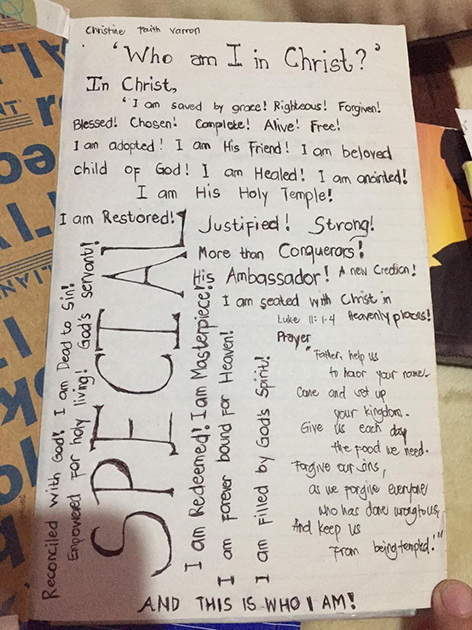 Christine Faith Varron
'Who am I in Christ?'
In Christ,
'I am saved by grace! Righteous! Forgiven!
Blessed! Chosen! Complete! Alive! Free!
I am adopted! I am His Friend! I am beloved
child of God! I am Healed! I am anointed!
I am His Holy Temple!
I am Restored!
Justified! Strong!
More than Conquerors!
His Ambassador! A new Creation!
I am seated with Christ in
Heavenly places!
Reconciled with God! I am Dead to Sin!
Empowered for holy living! God's servant!
SPECIAL
I am Redeemed! I am Masterpiece!
I am forever bound for Heaven!
I am filled by God's Spirit!
Luke 11:1-4
Prayer
"Father, help us
to honor your name.
Come and set up
your kingdom.
Give us each day
the food we need.
Forgive our sins,
as we forgive everyone
who has done wrong to us,
And keep us
from being tempted."'
AND THIS IS WHO I AM!